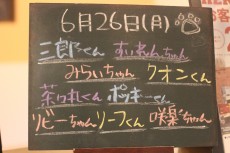 6月26日(月)
三郎くん
みらいちゃん クオンくん
茶々丸くん ポッキーくん
リビーちゃん リーフくん 咲楽ちゃん